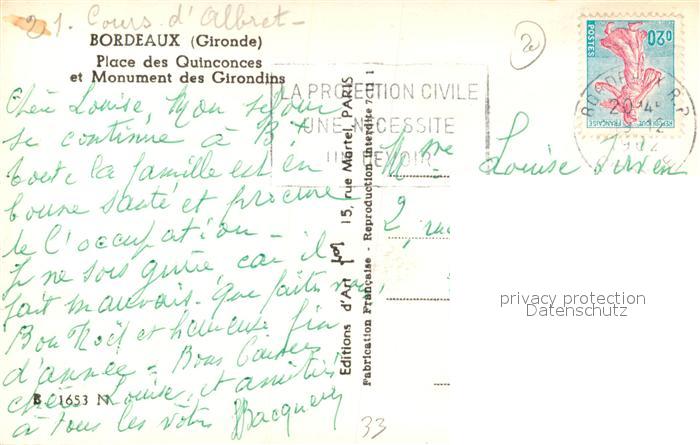 21. Cours d'Albret -
BORDEAUX (Gironde)
Place des Quinconces
et Monument des Girondins
Chère Louise, Mon séjour
se continue à Bx
toute la famille est en
bonne santé et procure
de l'occupation -
Je ne sors guère, car il
fait mauvais. Que faites vous,
Bon Noël et heureuse fin
d'année - Bons Baisers
chère Louise, et amitiés
à tous les vôtres
B. 1653 N
Editions d'Art 15, rue Martel, PARIS
Fabrication Française - Reproduction Interdite 7 C 1
LA PROTECTION CIVILE
UNE NECESSITE
UN DEVOIR
POSTES
0,20
REPUBLIQUE FRANÇAISE
BORDEAUX R.P.
Mme Louise
2, rue
33
privacy protection
Datenschutz